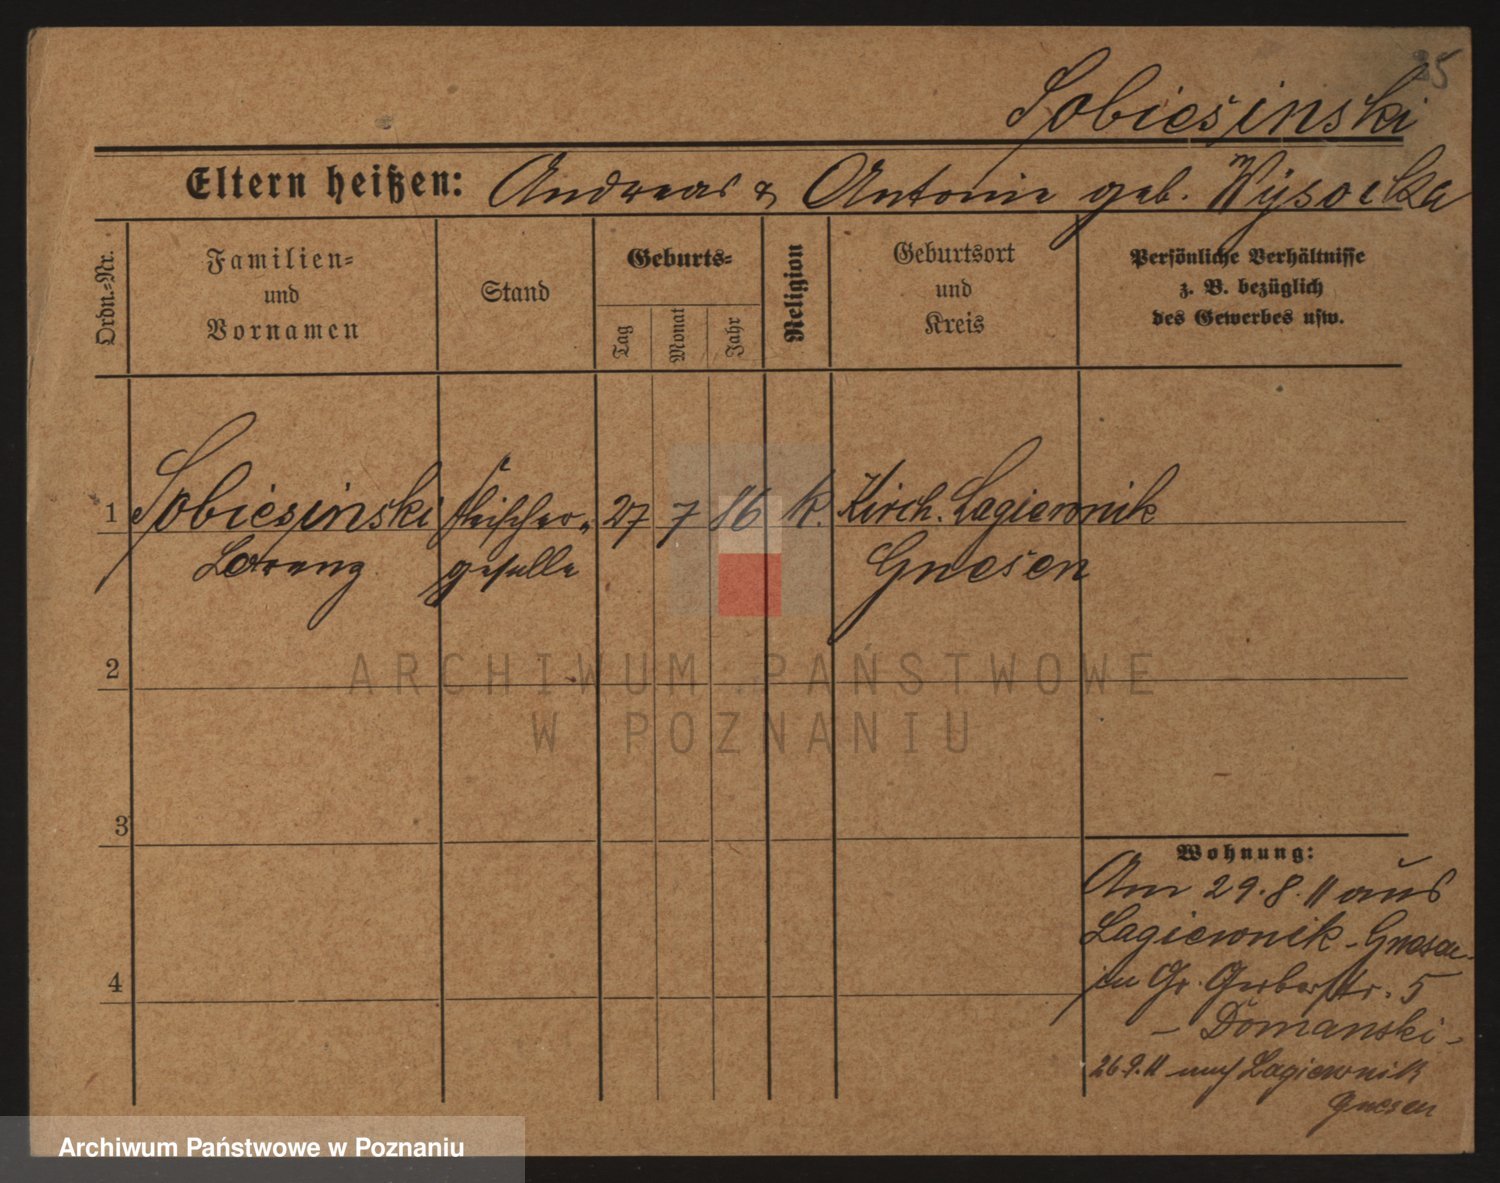 35
Sobiesinski
Eltern heißen: Andreas & Antonie geb. Wysocka
Ordn.=Nr.
Familien=
und
Vornamen
Stand
Geburts=
Tag
Monat
Jahr
Religion
Geburtsort
und
Kreis
Persönliche Verhältnisse
z. B. bezüglich
des Gewerbes usw.
1 Sobiesinski Fleischer- 27 7 86 k. Kirch. Lagiewnik
Lorenz geselle Gnesen
2
3
4
Wohnung:
Am 29.8.11 aus
Lagiewnik-Gnesen
zu Gr. Gerberstr. 5
- Domanski -
26.9.11 nach Lagiewnik
Gnesen
ARCHIWUM PAŃSTWOWE
W POZNANIU
Archiwum Państwowe w Poznaniu